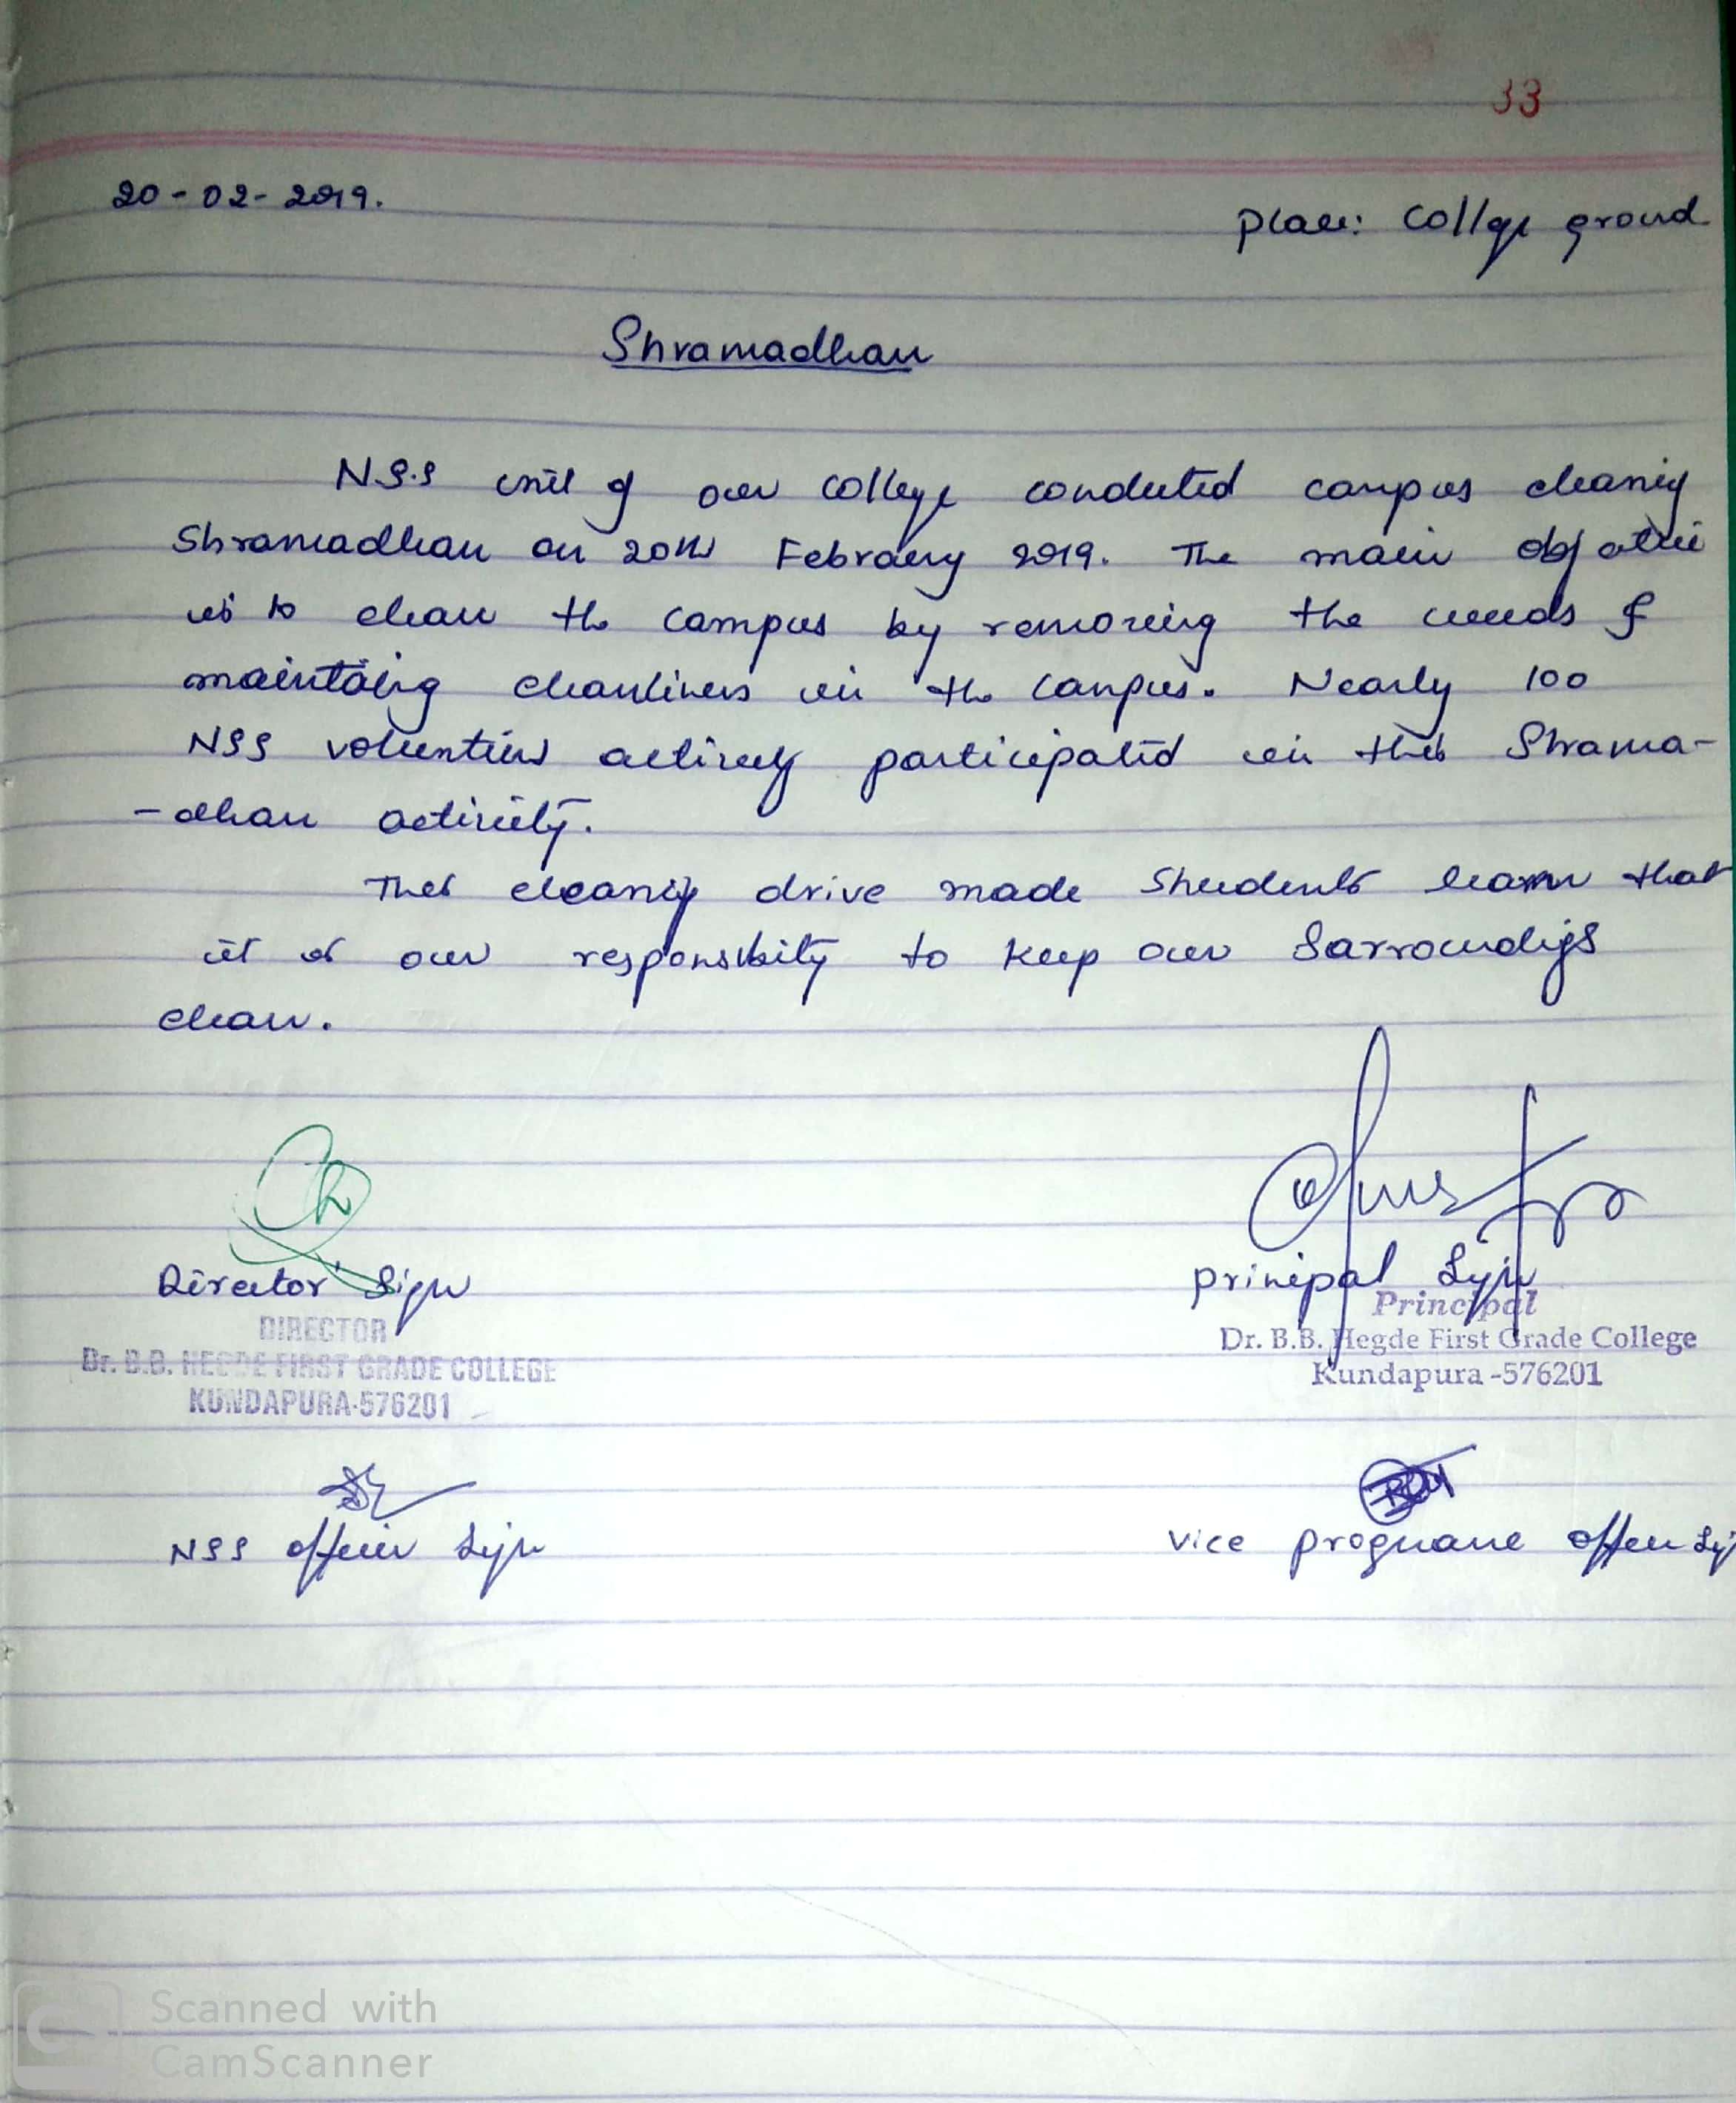 33
20-02-2019.
Place: College ground
Shramadhan
N.S.S unit of our college conducted campus cleaning
Shramadhan on 20th February 2019. The main objective
is to clean the campus by removing the weeds &
maintaing cleanliness in the campus. Nearly 100
NSS volunteers actively participated in this Shrama-
-dhan activity.
This cleaning drive made students learn that
it is our responsibity to keep our Sarroundigs
clean.
Director Sign
Principal Sign
DIRECTOR
Dr. B.B. HEGDE FIRST GRADE COLLEGE
KUNDAPURA-576201
Principal
Dr. B.B. Hegde First Grade College
Kundapura -576201
NSS officer Sign
Vice programe officer
Scanned with
CamScanner